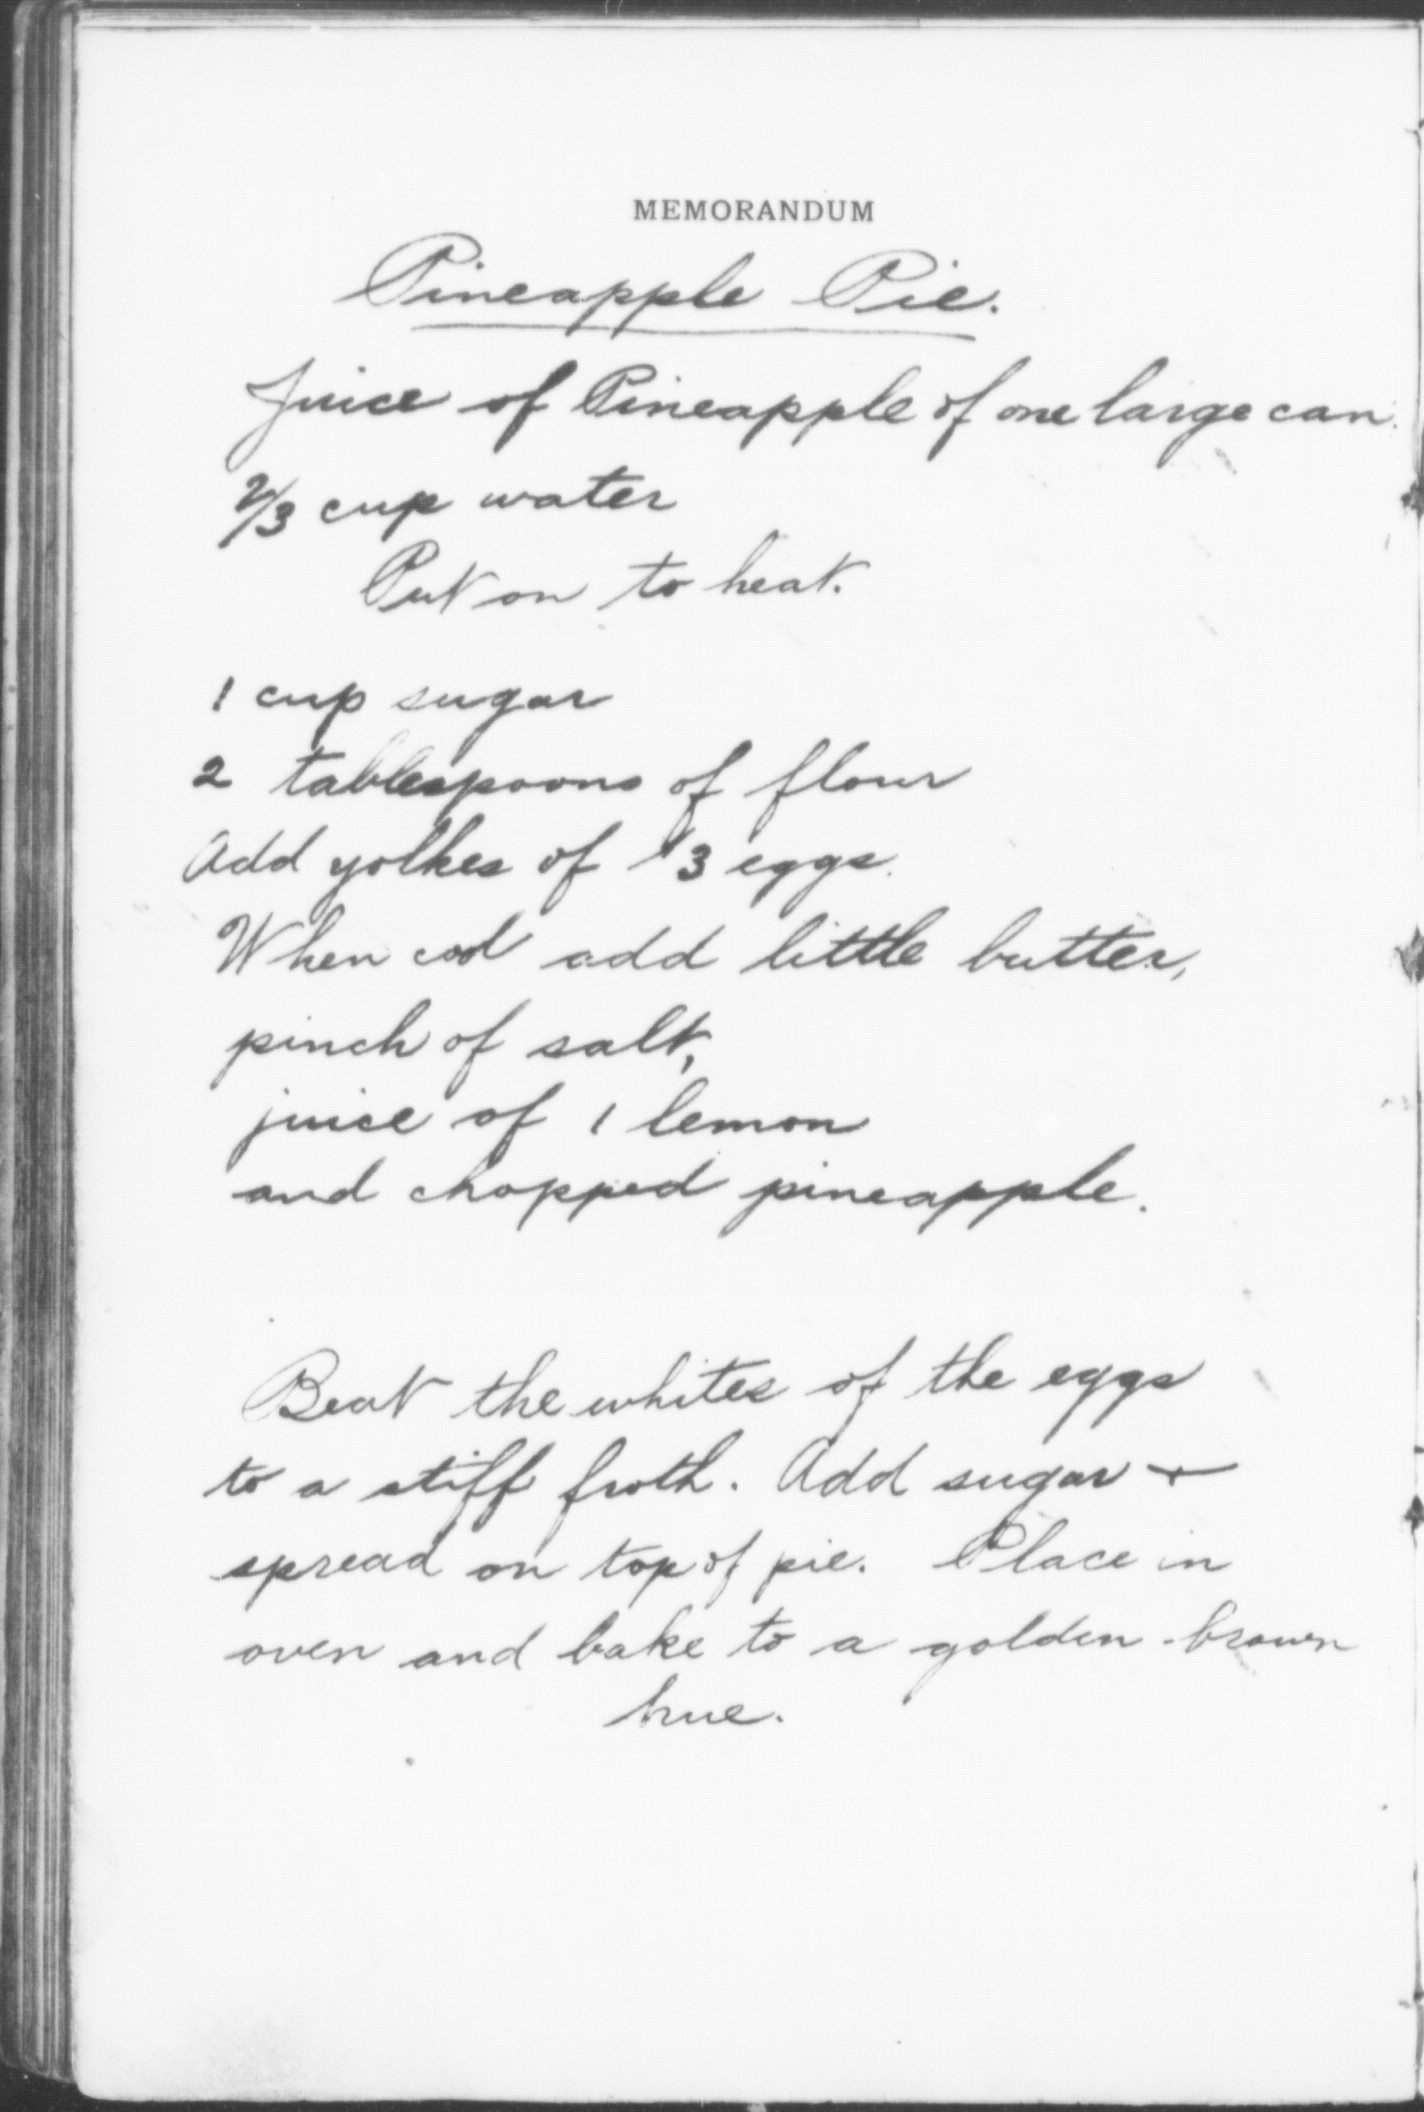 MEMORANDUM
Pineapple Pie.
Juice of Pineapple of one large can.
2/3 cup water
Put on to heat.
1 cup sugar
2 tablespoons of flour
Add yolkes of 3 eggs.
When cool add little butter,
pinch of salt,
juice of 1 lemon
and chopped pineapple.
Beat the whites of the eggs
to a stiff froth. Add sugar +
spread on top of pie. Place in
oven and bake to a golden-brown
hue.